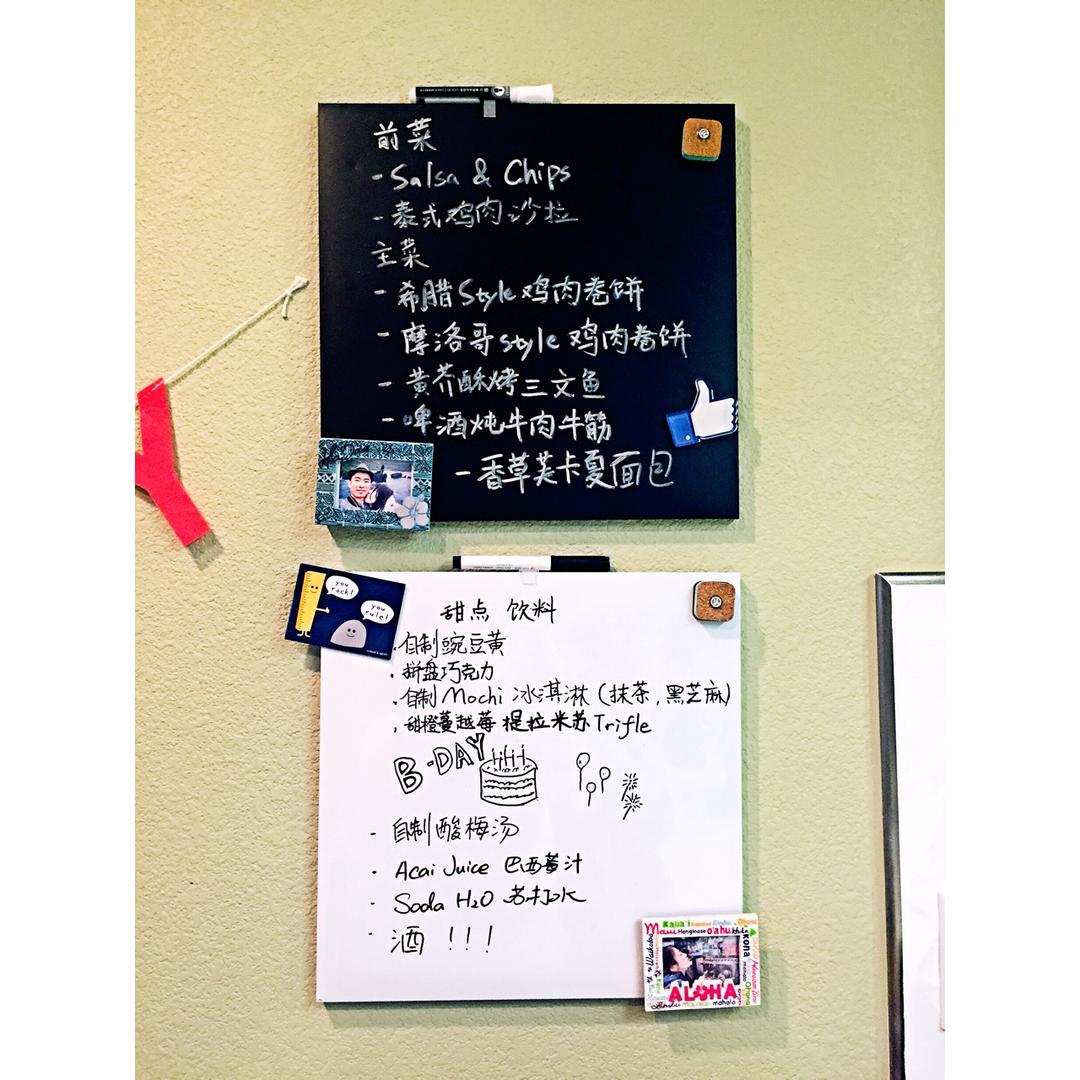 前菜
- Salsa & Chips
- 泰式鸡肉沙拉
主菜
- 希腊Style鸡肉卷饼
- 摩洛哥style鸡肉卷饼
- 黄芥酥烤三文鱼
- 啤酒炖牛肉牛筋
- 香草芙卡夏面包
you rock!
you rule!
甜点 饮料
. 自制豌豆黄
. 拼盘巧克力
. 自制Mochi冰淇淋(抹茶,黑芝麻)
. 甜橙蔓越莓提拉米苏Trifle
B-DAY
- 自制酸梅汤
- Acai Juice 巴西莓汁
- Soda H2O 苏打水
- 酒 !!!
Kaua'i
Maui Hanginase o'ahu
Kona
Ohana
ALOHA
mahalo
Y